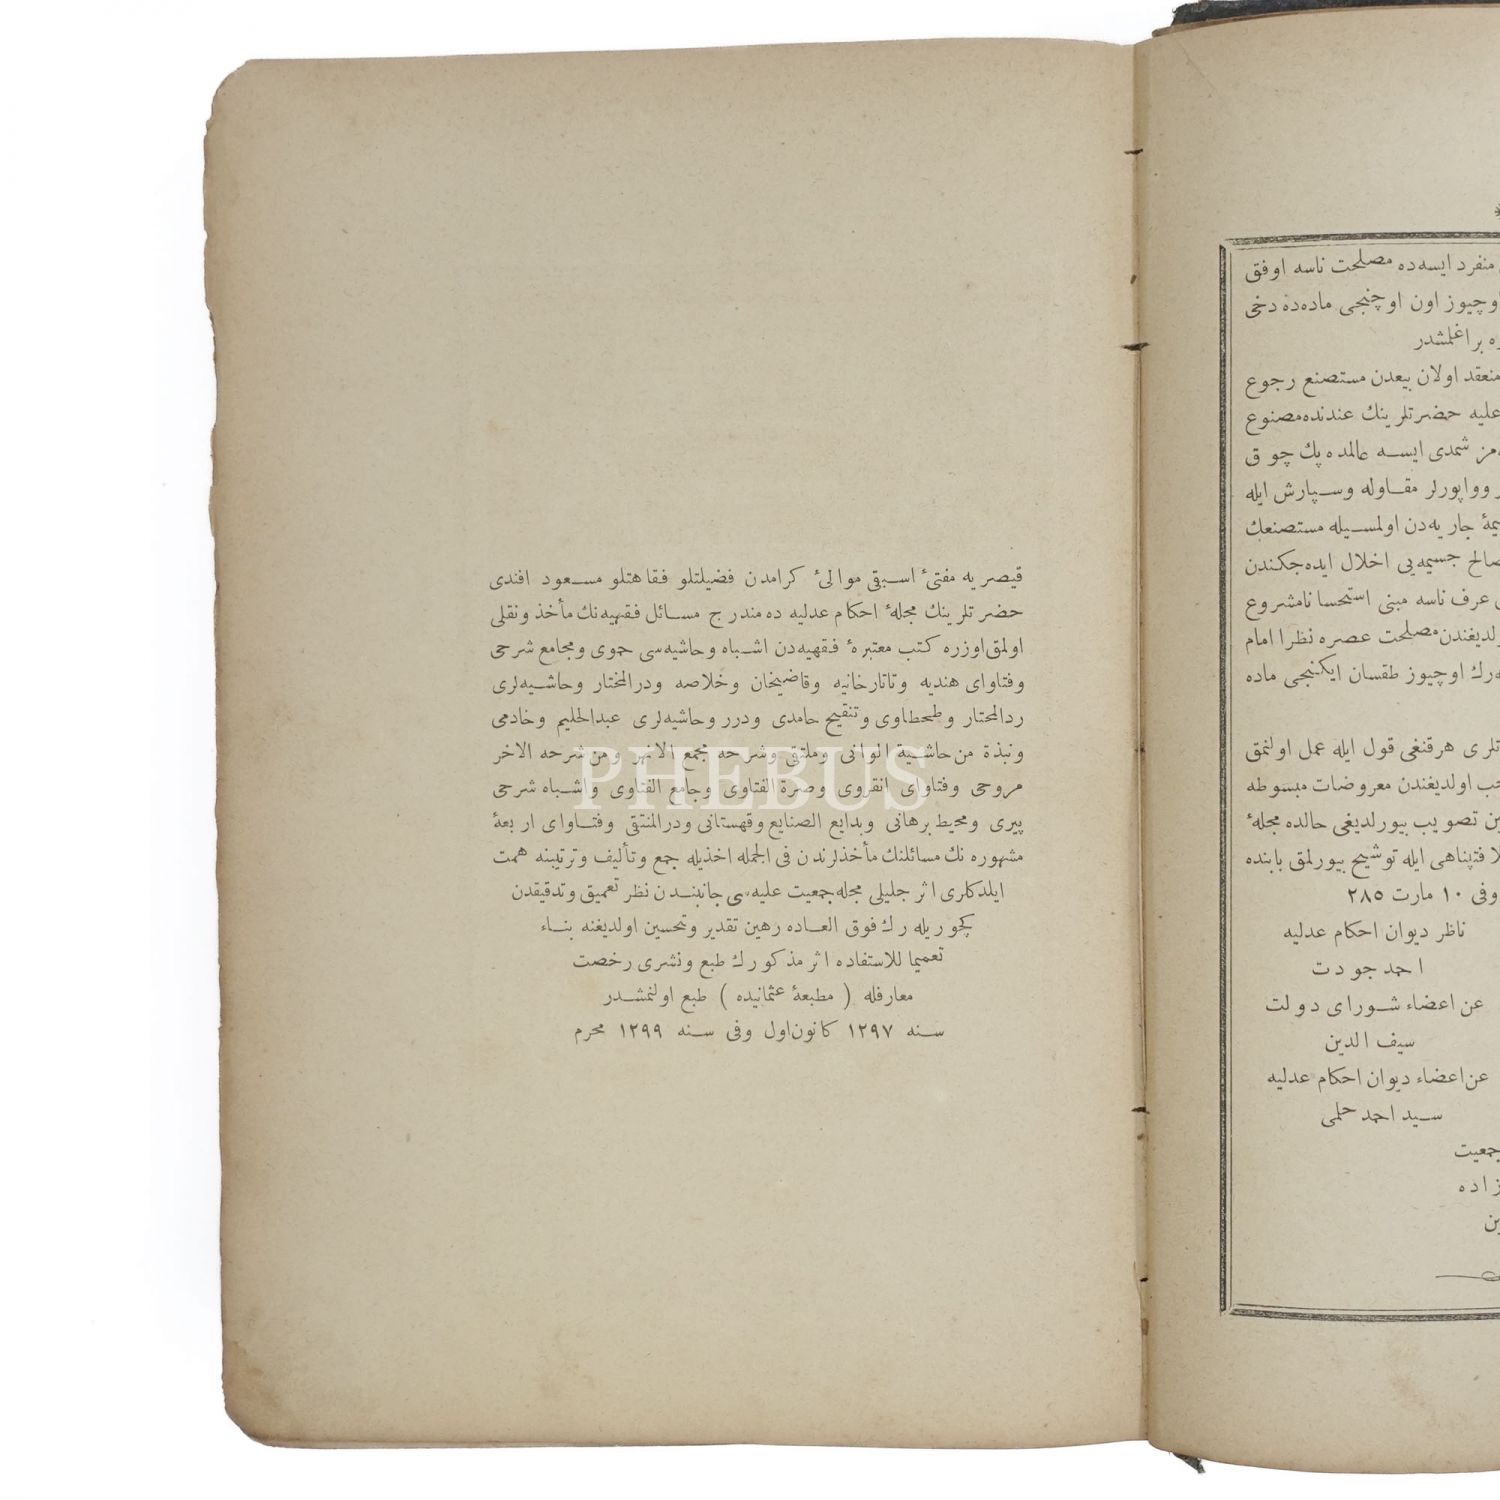 قيصريه مفتئ اسبقى موالئ كرامدن فضيلتلو فقاهتلو مسعود افندى
حضرتلرينك مجلۀ احكام عدليه ده مندرج مسائل فقهيه نك مأخذ ونقلى
اولمق اوزره كتب معتبرۀ فقهيه دن اشباه وحاشيه سى حموى ومجامع شرحى
وفتاواى هنديه وتاتارخانيه وقاضيخان وخلاصه ودرالمختار وحاشيه لرى
ردالمحتار وطحطاوى وتنقيح حامدى ودرر وحاشيه لرى عبدالحليم وخادمى
ونبذة من حاشية الوانى وملتقى وشرحه مجمع الانهر ومن شرحه الاخر
مروحى وفتاواى انقروى وصرة الفتاوى وجامع الفتاوى واشباه شرحى
پيرى ومحيط برهانى وبدايع الصنايع وقهستانى ودرالمنتقى وفتاواى اربعۀ
مشهوره نك مسائلنك مأخذلرندن فى الجمله اخذيله جمع وتأليف وترتيبنه همت
ايلدكلرى اثر جليلى مجله جمعيت عليه سى جانبندن نظر تعميق وتدقيقدن
كچوريله رك فوق العاده رهين تقدير وتحسين اولديغنه بناء
تعميما للاستفاده اثر مذكورك طبع ونشرى رخصت
معارفله ( مطبعۀ عثمانيده ) طبع اولنمشدر
سنه ١٢٩٧ كانون اول وفى سنه ١٢٩٩ محرم
PHEBUS
منفرد ايسه ده مصلحت ناسه اوفق
اوچيوز اون اوچنجى ماده ده دخى
براغلمشدر
منعقد اولان بيعدن مستصنع رجوع
عليه حضرتلرينك عندنده مصنوع
شمدى ايسه عالمده پك چوق
وواپورلر مقاوله وسپارش ايله
جاريه دن اولمسيله مستصنعك
جسيمه يى اخلال ايده جكندن
عرف ناسه مبنى استحسانا مشروع
مصلحت عصره نظرا امام
اوچيوز طقسان ايكنجى ماده
هرقنغى قول ايله عمل اولنمق
اولديغندن معروضات مبسوطه
تصويب بيورلديغى حالده مجلۀ
ايله توشيح بيورلمق بابنده
وفى ١٠ مارت ٢٨٥
ناظر ديوان احكام عدليه
احمد جودت
عن اعضاء شوراى دولت
سيف الدين
عن اعضاء ديوان احكام عدليه
سيد احمد حلمى
جمعيت
زاده